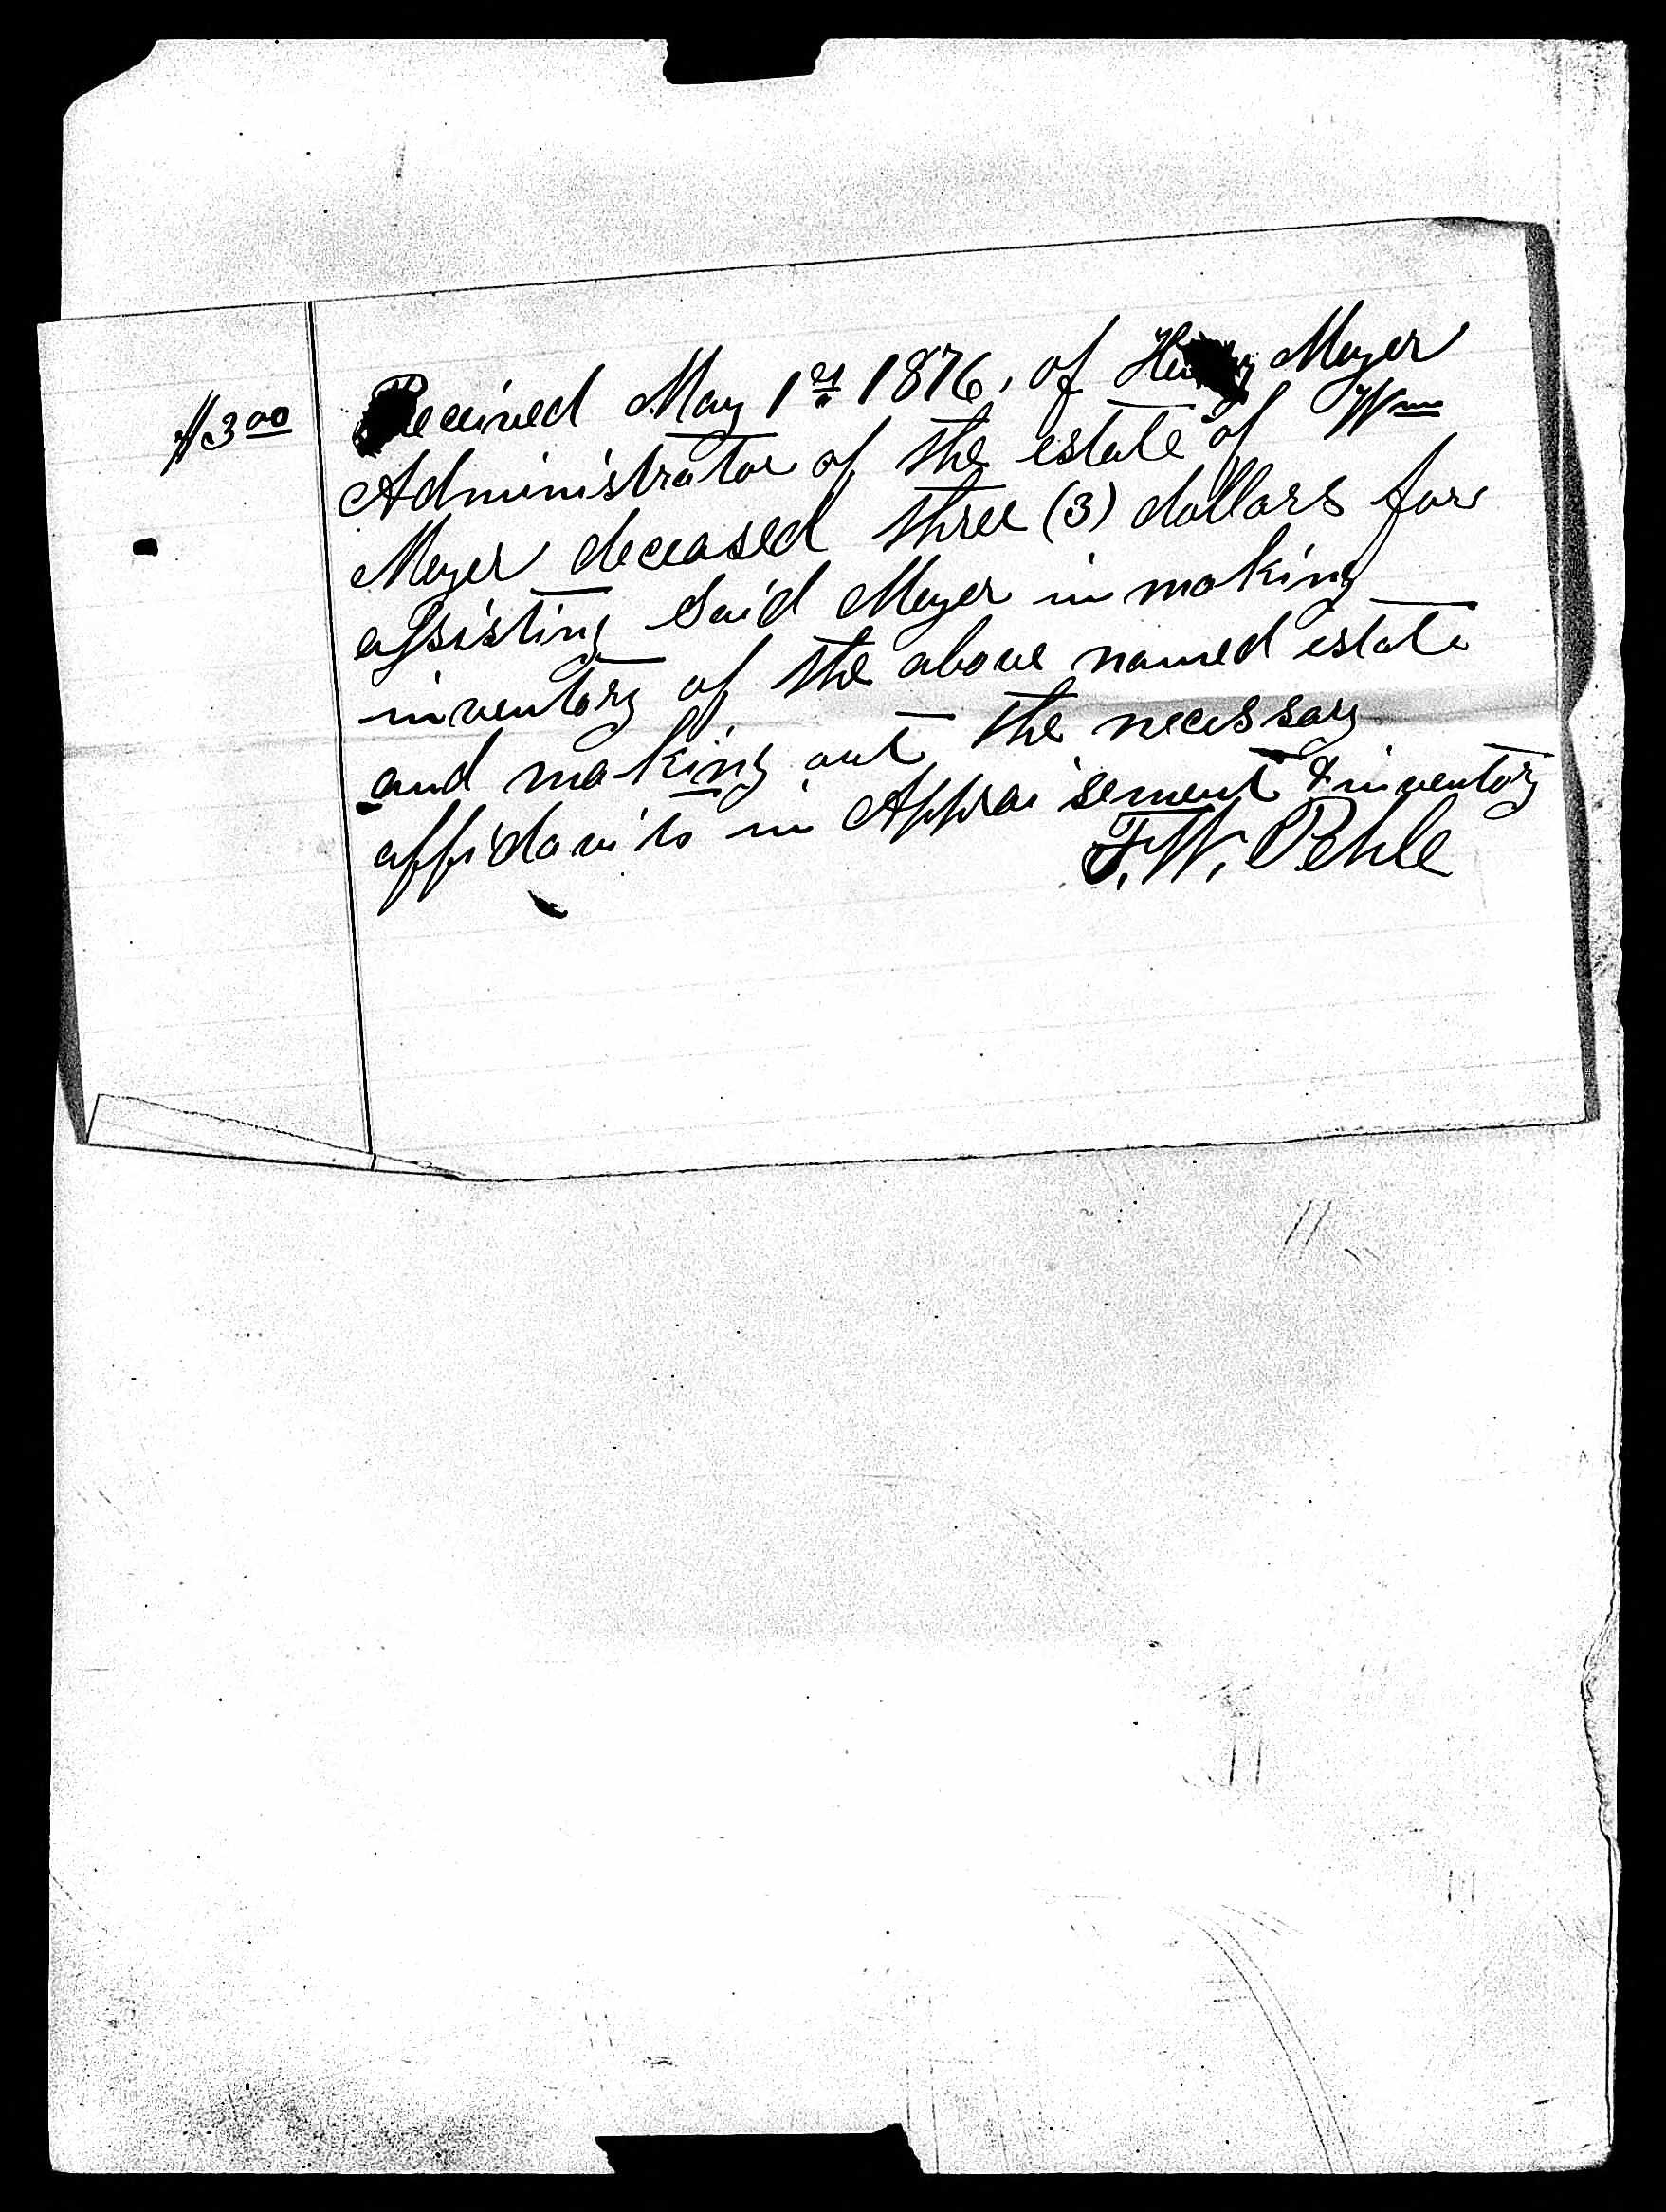 $3 00
Received May 1st 1876, of Henry Meyer
Administrator of the estate of Wm
Meyer deceased three (3) dollars for
assisting said Meyer in making
inventory of the above named estate
and making out the necessary
affidavits in Appraisement & inventory
F. W. Pehle